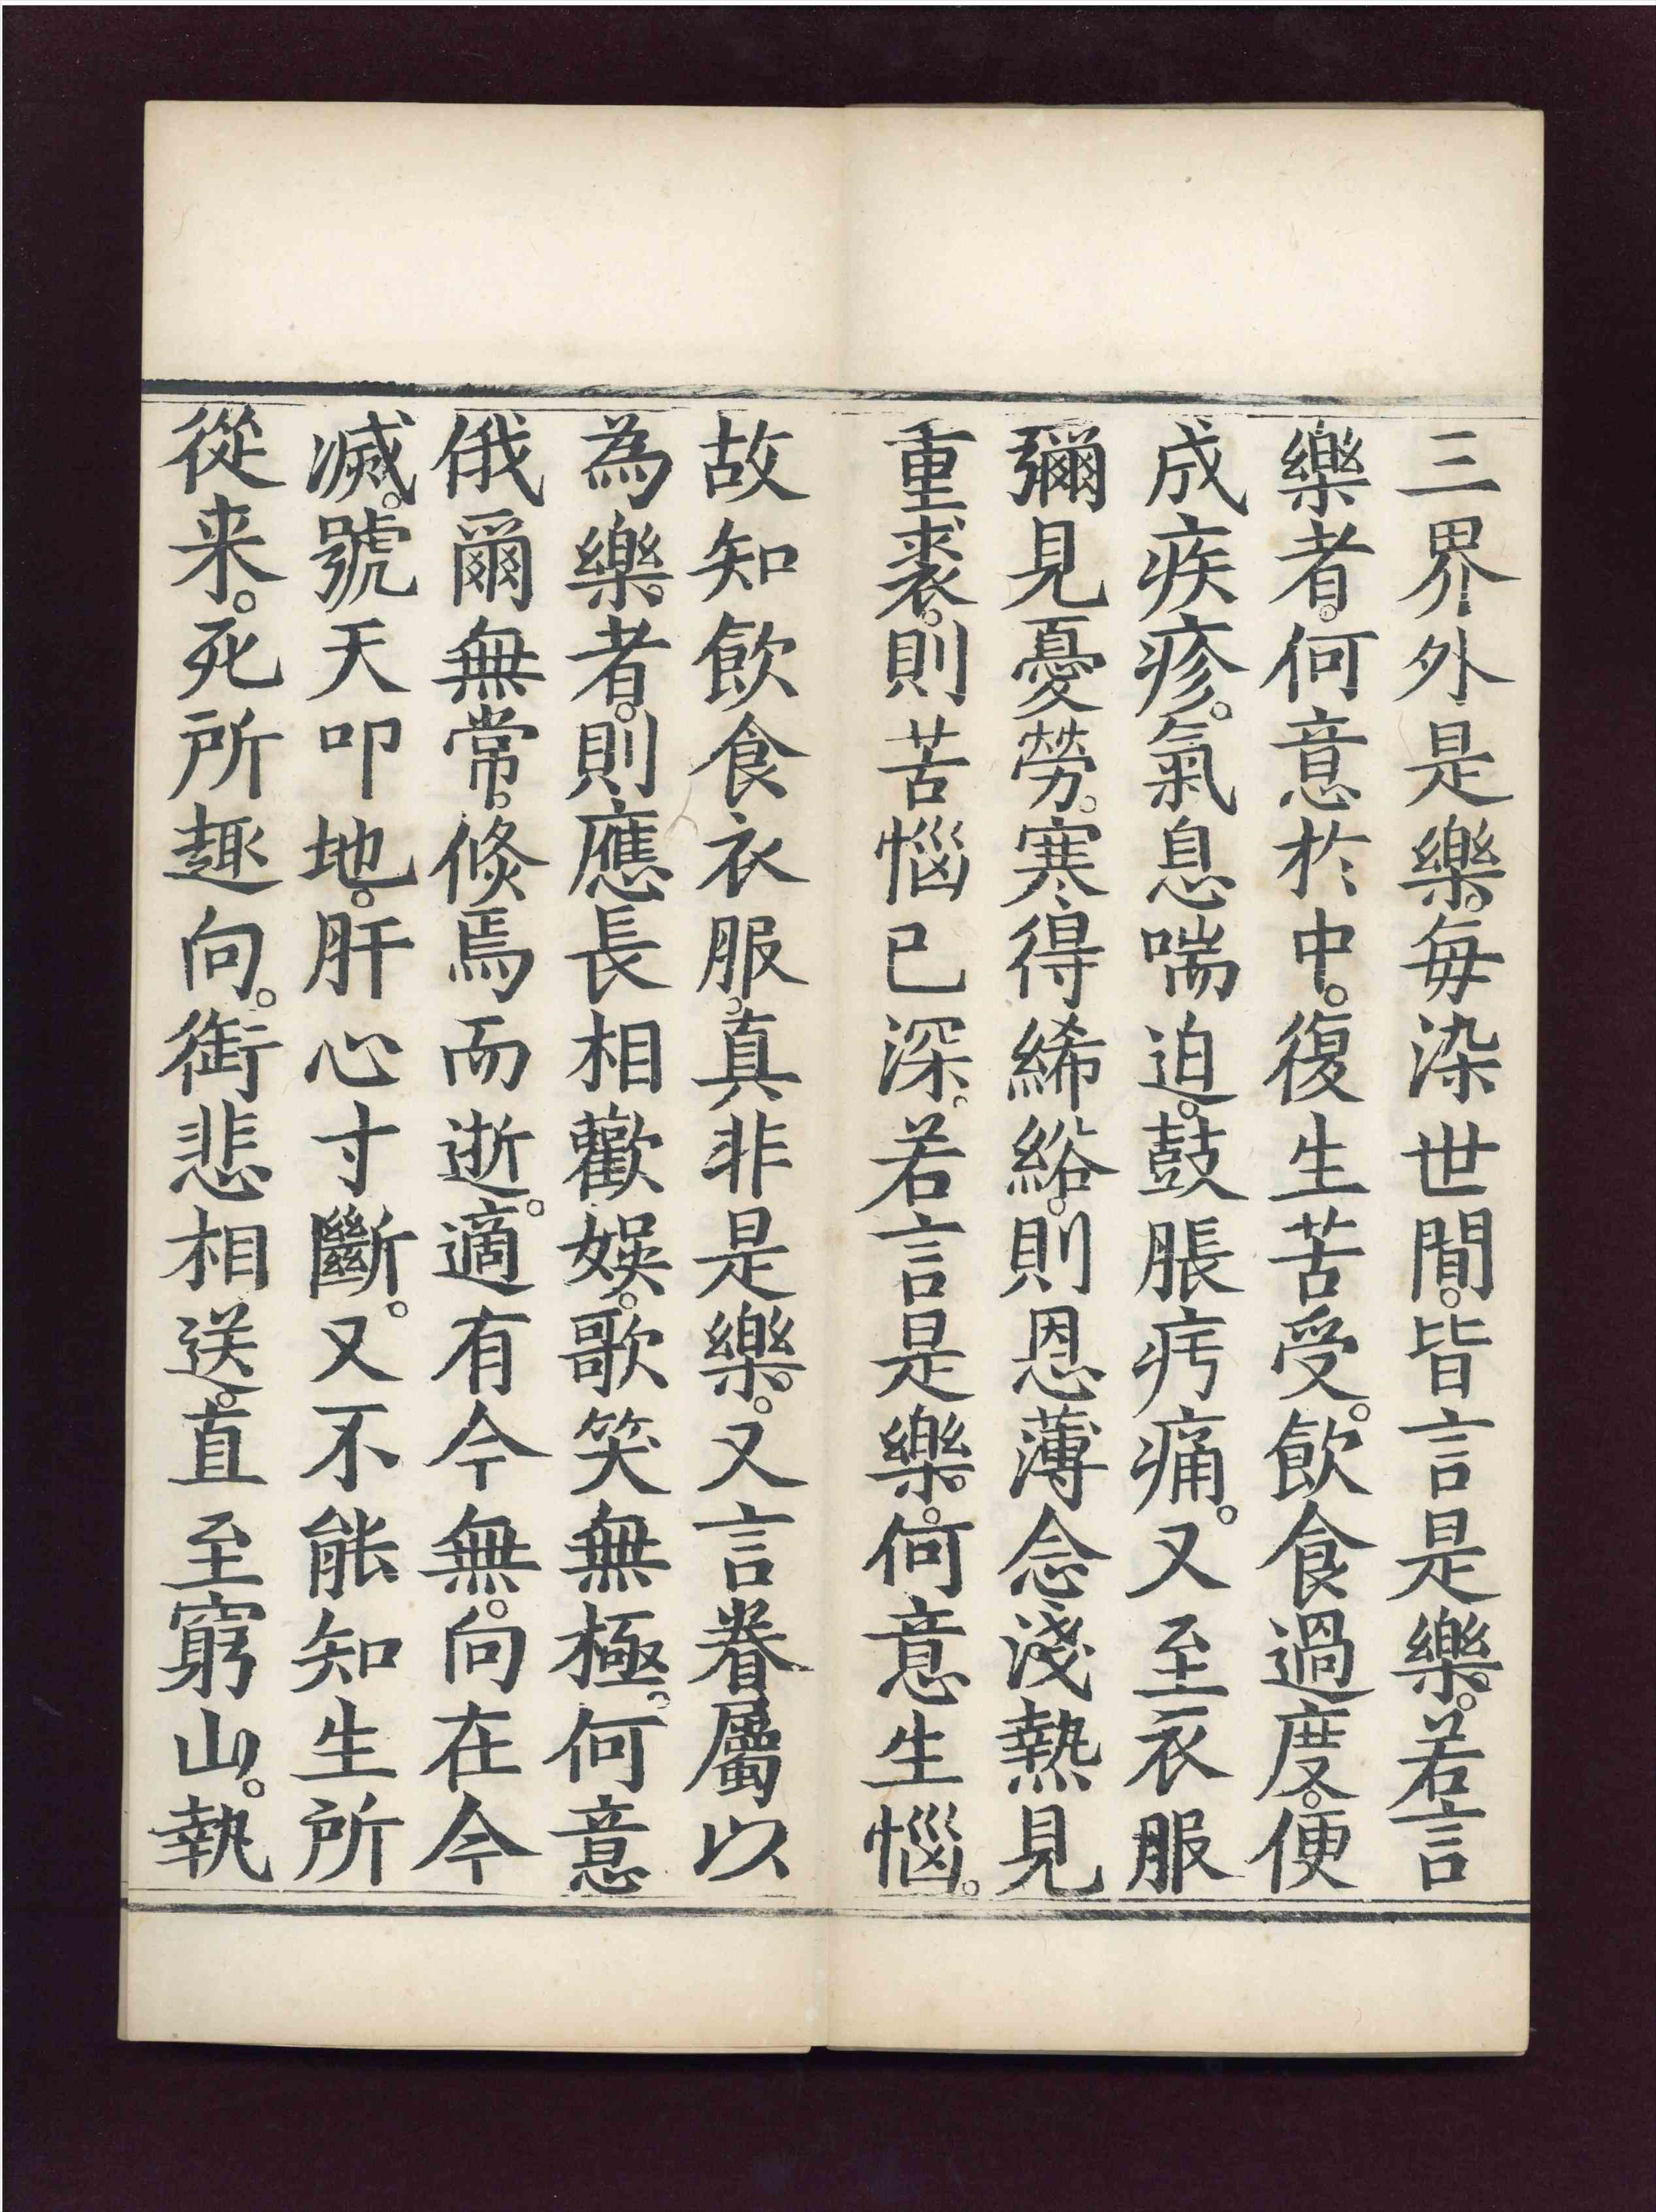 三界外是樂。每染世間。皆言是樂。若言
樂者。何意於中。復生苦受。飲食過度。便
成疾疹。氣息喘迫。鼓脹㽲痛。又至衣服
彌見憂勞。寒得絺綌。則恩薄念淺熱見
重裘。則苦惱已深。若言是樂。何意生惱。
故知飲食衣服。真非是樂。又言眷屬以
為樂者。則應長相歡娛。歌笑無極。何意
俄爾無常。倏焉而逝。適有今無。向在今
滅。號天叩地。肝心寸斷。又不能知生所
從来。死所趣向。銜悲相送。直至窮山。執